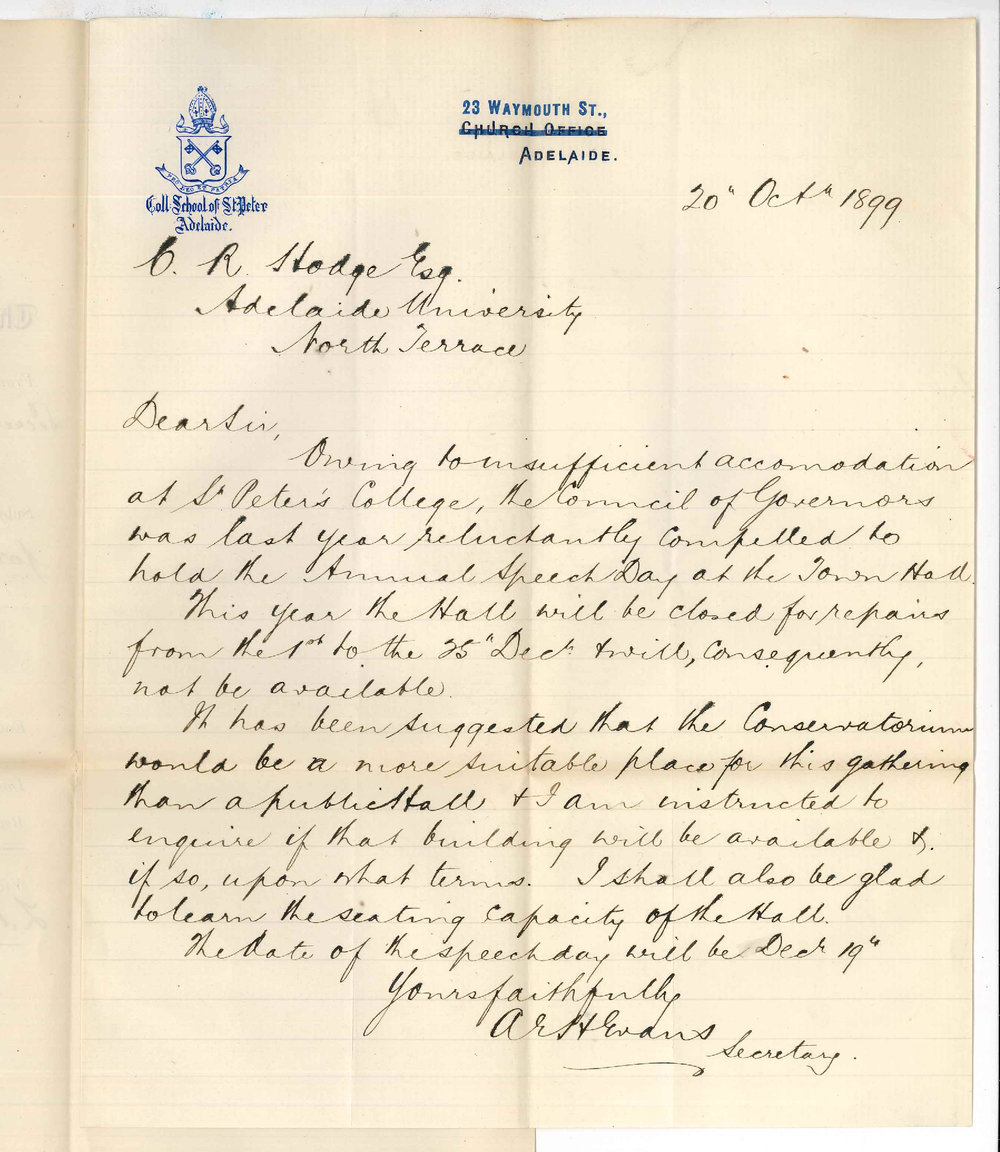 23 WAYMOUTH ST.,
CHURCH OFFICE
ADELAIDE.
PRO DEO ET PATRIA
Coll: School of St Peter
Adelaide.
20th Octr 1899
C. R. Hodge Esq.
Adelaide University
North Terrace
Dear Sir,
Owing to insufficient accomodation
at St Peter's College, the Council of Governors
was last year reluctantly compelled to
hold the Annual Speech Day at the Town Hall.
This year the Hall will be closed for repairs
from the 1st to the 25th Decr & will, consequently,
not be available.
It has been suggested that the Conservatorium
would be a more suitable place for this gathering
than a public Hall & I am instructed to
enquire if that building will be available &
if so, upon what terms. I shall also be glad
to learn the seating capacity of the Hall.
The date of the speech day will be Decr 19th
Yours faithfully
Evans
Secretary.